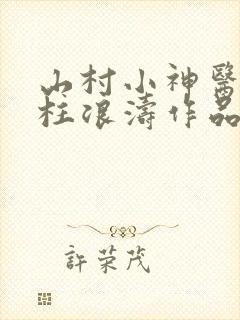 山村小神醫
枉浪濤作品
許荣茂